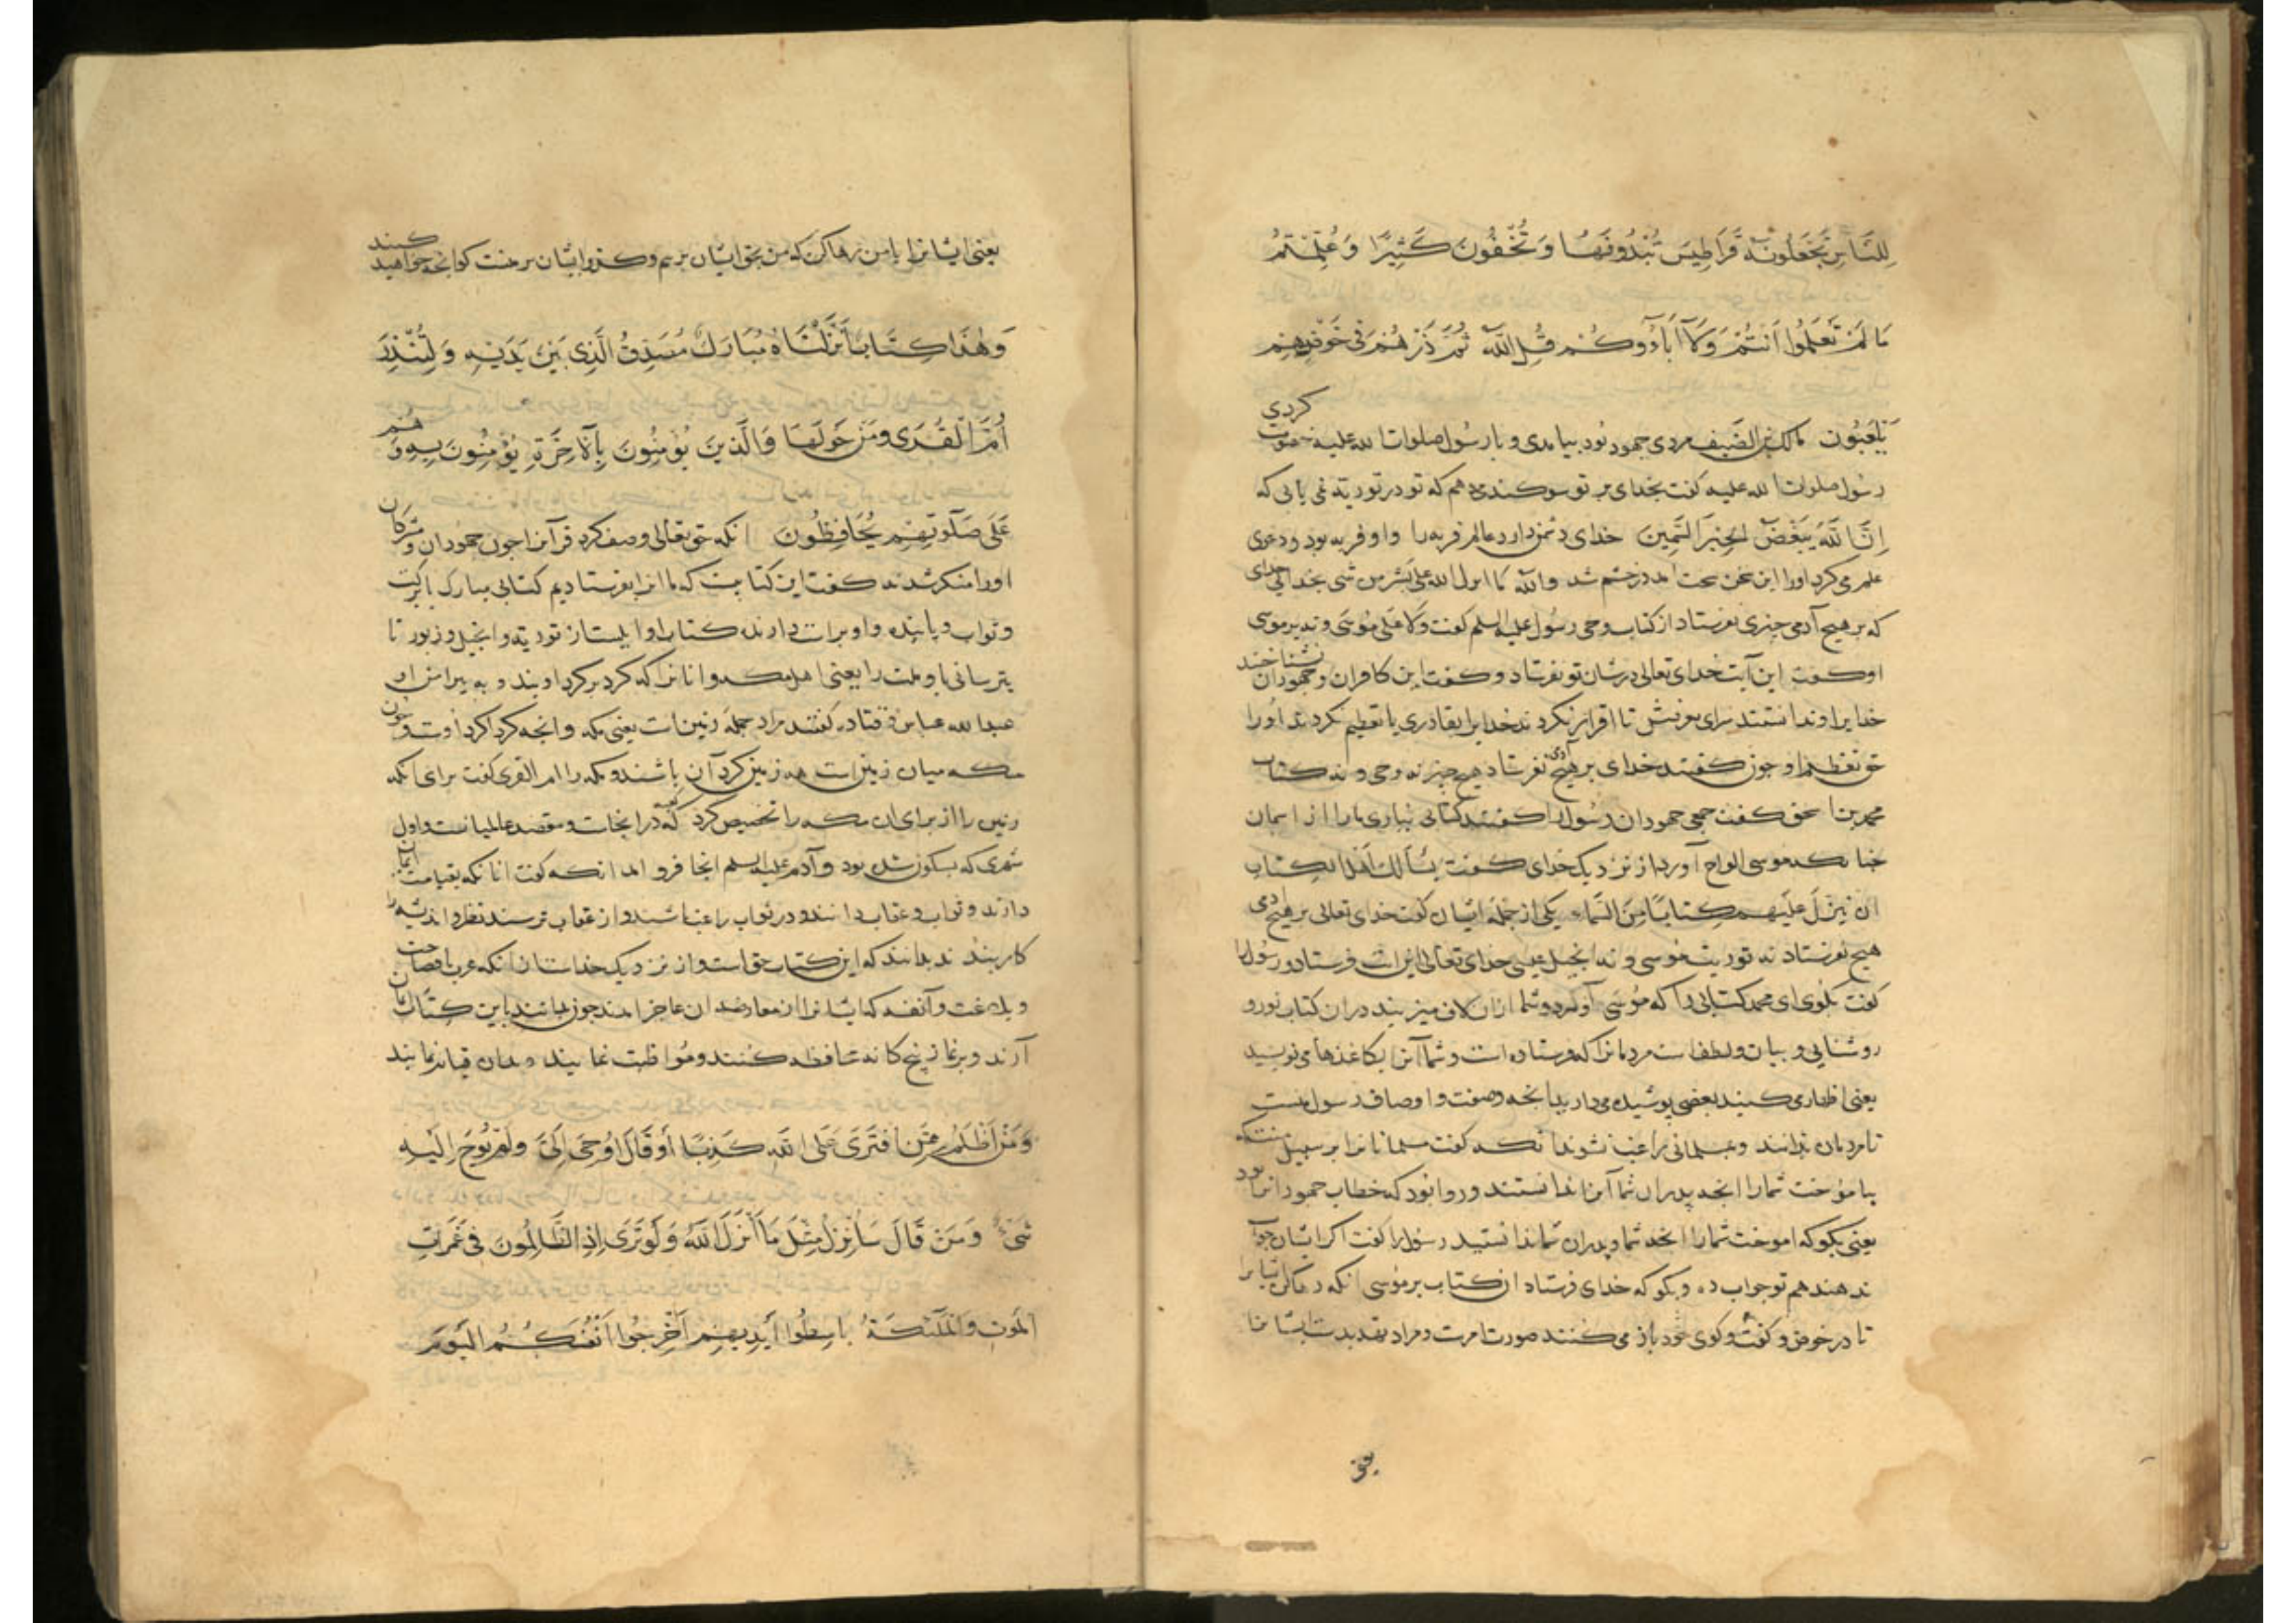 لِلنَّاسِ تَجْعَلُونَهُ قَرَاطِيسَ تُبْدُونَهَا وَتُخْفُونَ كَثِيرًا وَعُلِّمْتُمْ
مَا لَمْ تَعْلَمُوا أَنْتُمْ وَلَا آبَاؤُوكُمْ قُلِ اللَّهُ ثُمَّ ذَرْهُمْ فِي خَوْضِهِمْ
يَلْعَبُونَ مالک بن الضیف مردی جهود بود بیامدی و با رسول صلوات الله علیه خصومت کردی
رسول صلوات الله علیه کفت بخدای بر تو سوکند می دهم که تو در توریة می یابی که
اِنَّ اللَّهَ يَبْغَضُ الحِبرَ السَّمِينَ خدای دشمن دارد عالم فربه را و او فربه بود و دعوی
علم می کرد او را این سخن سخت آمد در خشم شد والله ما انزل الله علی بشر من شی بخدای
که بر هیچ آدمی چیزی نفرستاد از کتاب و حی رسول علیه السلم کفت وَلَا عَلَی مُوسَی و نه بر موسی
او کفت این آیت خدای تعالی در شان تو بفرستاد و کفت این کافران و جهودان نشناختند
خدا یرا و ندانستند برای بونش تا اقرار نکردند خدایرا بقادری یا تعظیم نکردند او را
حق تعظیم او چون کفتند خدای بر هیچ آدمی نفرستاد هیچ چیز نه وحی و نه کتاب
محمد بن اسحق کفت جمعی جهودان رسول را کفتند کتابی نیاری ما را از اسمان
چنانکه موسی الواح آورد از نزدیک خدای کفت يَسْأَلُكَ أَهْلُ الكِتَابِ
ان تنزل عَلَيْهِمْ كِتَابًا مِنَ السَّمَاء یکی از جمله ایشان کفت خدای تعالی بر هیچ آدمی
هیچ نفرستاد نه توریت موسی و نه انجیل عیسی خدای تعالی این ایت فرستاد و رسول را
کفت بکوی ای محمد کتابی را که موسی آورد و شما ازان لاف میزنید دران کتاب نور و
روشنایی و بیان و لطف است مردمانرا که فرستاده است و شما آنرا بکاغذها می نویسید
یعنی اظهار می کنید بعضی پوشیده می دارید انچه وصفت و اوصاف رسول منست
تا مردمان ندانند و بمسلمانی راغب نشوند انکه کفت مسلمانانرا بر سبیل منت که
بیاموخت شما را انچه پدران شما آنرا ندانستند و روا بود که خطاب جهودانرا بود
یعنی بکو که اموخت شما را انچه شما و پدران شما ندانستید رسول را کفت اکر ایشان جواب
ندهند هم تو جواب ده و بکو که خدای فرستاد ان کتاب بر موسی انکه رها کن ایشانرا
تا در خوض و کفت و کوی خود بازی می کنند صورت امرست و مراد تهدیدست ایشانرا
یعنی
یعنی ایشانرا با من رها کن که من بحق ایشان برسم و کذر ایشان بر منست کو انچه خواهید کنید
وَهَٰذَا كِتَابٌ أَنْزَلْنَاهُ مُبَارَكٌ مُصَدِّقُ الَّذِي بَيْنَ يَدَيْهِ وَلِتُنْذِرَ
أُمَّ الْقُرَى وَمَنْ حَوْلَهَا وَالَّذِينَ يُؤْمِنُونَ بِالْآخِرَةِ يُؤْمِنُونَ بِهِ وَهُمْ
عَلَى صَلَوتِهِمْ يُحَافِظُونَ انکه حق تعالی وصف کرد قرآنرا چون جهودان و مشرکان
اورا منکر شدند کفت این کتابیست که ما انرا بفرستادیم کتابی مبارک با برکت
و ثواب و پاینده و او برات دارنده کتابها وایلستاز توریة و انجیل و زبور تا
بترسانی باو ملت را یعنی اهل مکه و انانرا که کرد بر کرد اویند و به پیرامن او
عبدالله عباس و قتاده کفتند مراد جمله زمین است یعنی مکه و انچه کرد اکرد اوست و چون
مکه میان زمین است همه زمین کرد آن باشند و مکه را ام القری کفت برای انکه
زمین را از برای ان مکه را تخصیص کرد که کعبه در انجاست و مقصد عالمیانست و اول
شهری که مسکون شده بود و آدم علیه السلم انجا فرو امد انکه کفت انانکه بقیامت ایمان
دارند و ثواب و عقاب دانند و در ثواب راغب باشند و از عقاب ترسند نظر و اندیشه را
کار بندند بدانند که این کتاب حق است و از نزدیک خداست زانکه عرب با فصاحت
و بلاغت و آنفه که ایشانرا از معارضه ان عاجز امدند چون بدانند باین کتاب ایمان
آرند و بر نماز پنج کانه محافظه کنند و مواظبت نمایند و بدان قیام نمایند
وَمَنْ أَظْلَمُ مِمَّنِ افْتَرَى عَلَى اللَّهِ كَذِبًا أَوْ قَالَ أُوحِيَ إِلَيَّ وَلَمْ يُوحَ إِلَيْهِ
شَيْءٌ وَمَنْ قَالَ سَأُنْزِلُ مِثْلَ مَا أَنْزَلَ اللَّهُ وَلَوْ تَرَى إِذِ الظَّالِمُونَ فِي غَمَرَاتِ
الْمَوْتِ وَالْمَلَٰئِكَةُ بَاسِطُوا أَيْدِيهِمْ أَخْرِجُوا أَنْفُسَكُمُ الْيَوْمَ